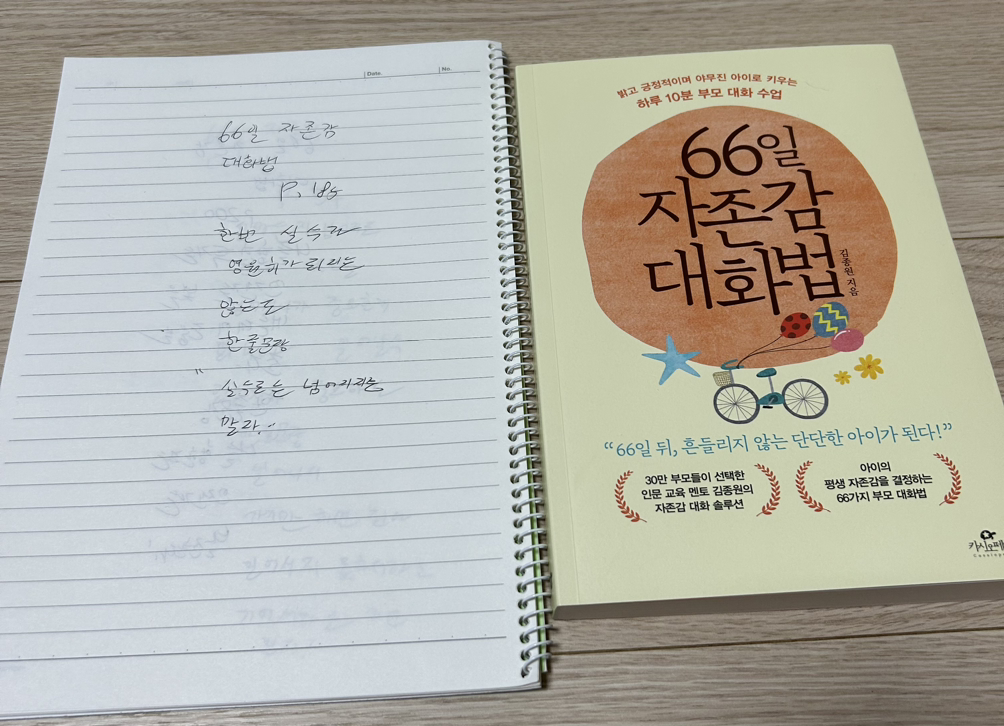 Date.
No.
66일 자존감
대화법
P. 185
한번 실수가
않는도
한줄문장
"
실수로는 넘어지지는
말라.."
밝고 긍정적이며 야무진 아이로 키우는
하루 10분 부모 대화 수업
66일
자존감
대화법
김종원 지음
“66일 뒤, 흔들리지 않는 단단한 아이가 된다!”
30만 부모들이 선택한
인문 교육 멘토 김종원의
자존감 대화 솔루션
아이의
평생 자존감을 결정하는
66가지 부모 대화법
카시오페